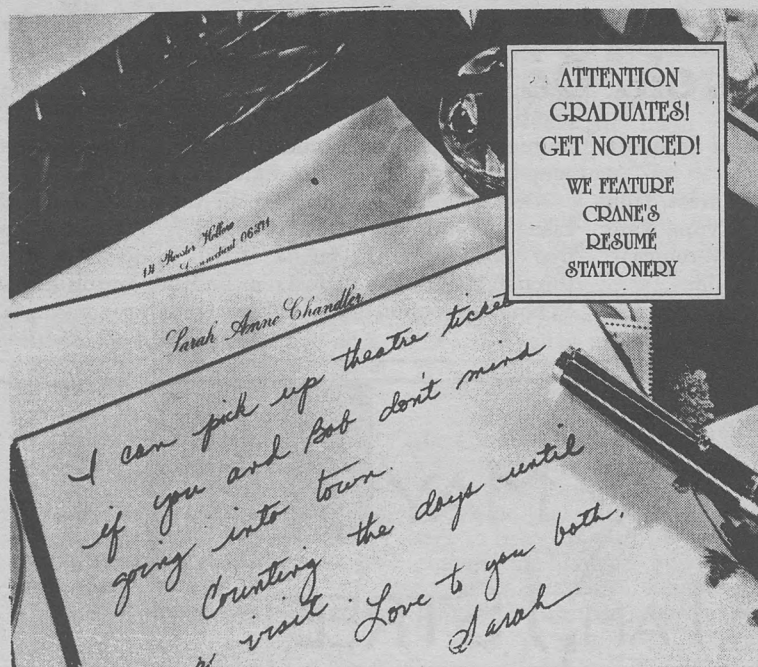 ATTENTION
GRADUATES!
GET NOTICED!
WE FEATURE
CRANE'S
RESUMÉ
STATIONERY
14 Rooster Hollow
06371
Sarah Anne Chandler
I can pick up theatre
if you and Bob don't mind
going into town.
Counting the days until
visit. Love to you both,
Sarah